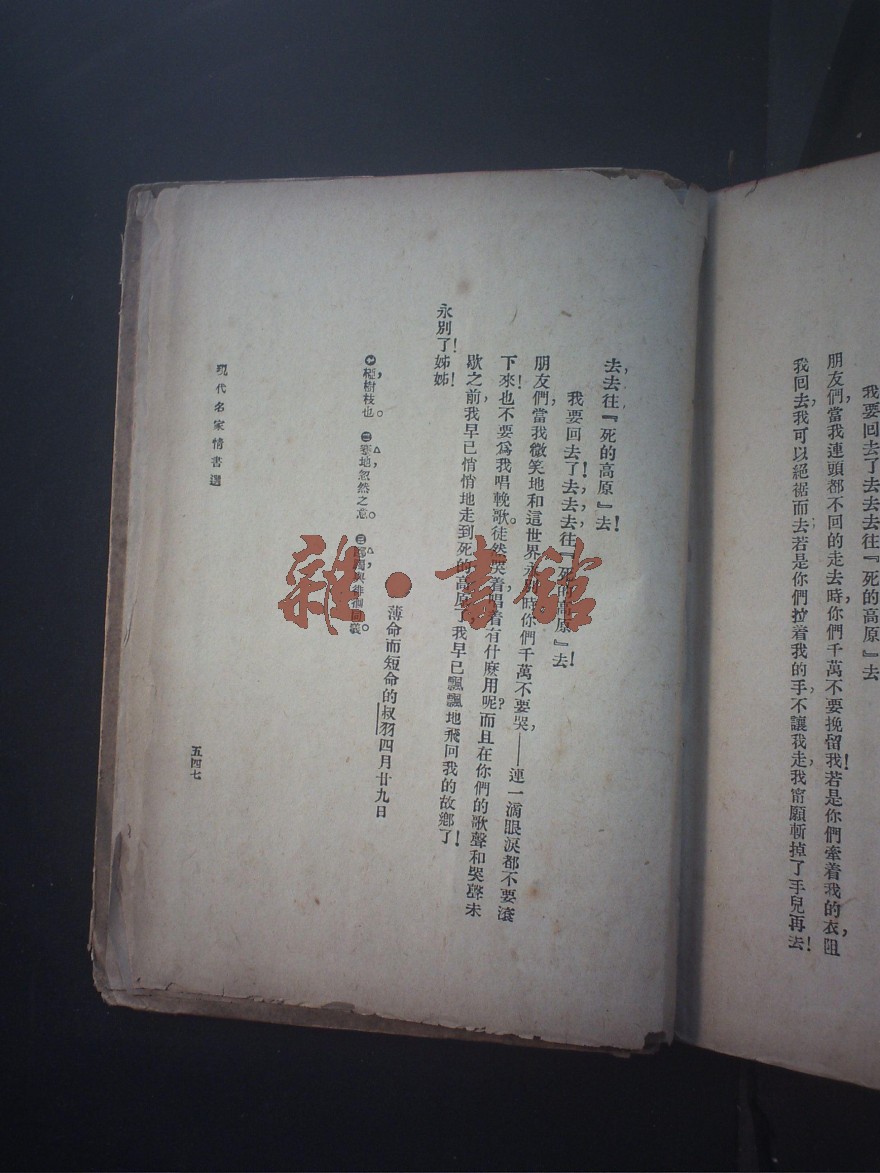 我要回去了去去去往『死的高原』去
朋友們，當我連頭都不回的走去時，你們千萬不要挽留我！若是你們牽着我的衣，阻
我回去，我可以絕裾而去；若是你們拉着我的手，不讓我走，我甯願斬掉了手兒再去！
去，去，往『死的高原』去！
我要回去了！去，去，去，往『死的高原』去！
朋友們，當我微笑地和這世界永別時，你們千萬不要哭，——連一滴眼淚都不要滾
下來！也不要爲我唱輓歌。徒然哭着，唱着，有什麽用呢？而且在你們的歌聲和哭聲未
歇之前，我早已悄悄地走到死的高原了，我早已飄飄地飛回我的故鄉了！
永別了！姊姊！
薄命而短命的叔羽四月廿九日
㊀椏，樹枝也。㊁驀地，忽然之意。㊂與徘徊同義。
現代名家情書選
五四七
雜·書館